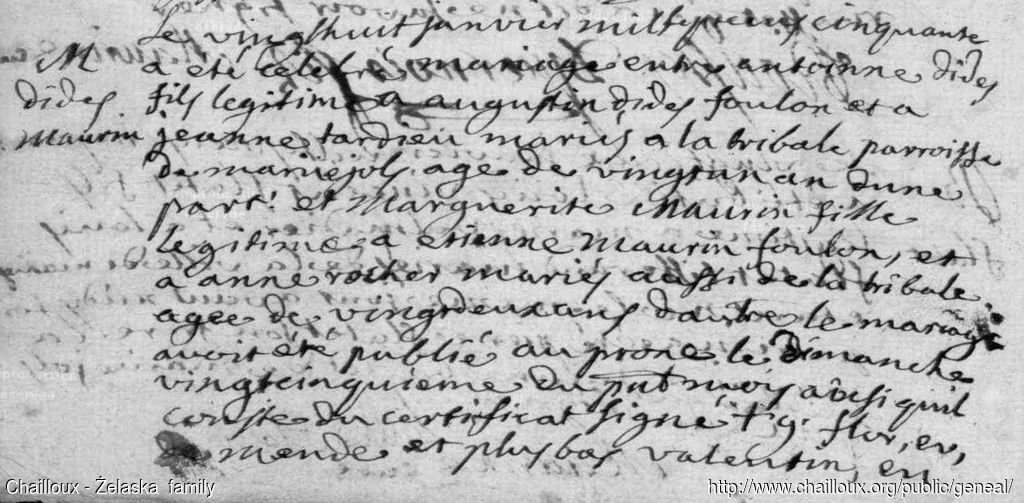 Le vingthuit janvier mil sept cens cinquante
M a eté celebré mariage entre antoinne dides
dides fils legitime a augustin dides foulon et a
Maurin jeanne tardieu mariés a la tribale parroisse
de mariejols age de vingtun an dune
part. et Marguerite Maurin fille
legitime a etienne Maurin foulon, et
a anne rocher mariés aussi de la tribale
agee de vingtdeux ans dautre le mariage
avoit été publié au prone le Dimanche
vingtcinquieme du pnt mois ainsi quil
conste du certificat signé + g. flor, ev,
de mende et plus bas valentin, en
Chailloux - Żelaska family
http://www.chailloux.org/public/geneal/